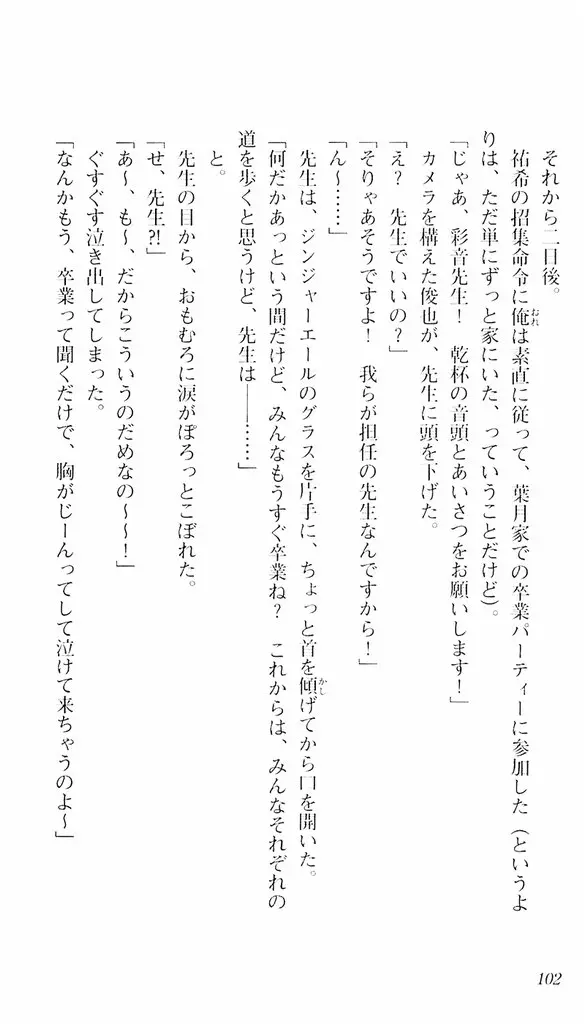 それから二日後。
祐希の招集命令に俺は素直に従って、葉月家での卒業パーティーに参加した（というよ
りは、ただ単にずっと家にいた、っていうことだけど）。
「じゃあ、彩音先生！　乾杯の音頭とあいさつをお願いします！」
カメラを構えた俊也が、先生に頭を下げた。
「え？　先生でいいの？」
「そりゃあそうですよ！　我らが担任の先生なんですから！」
「ん〜……」
先生は、ジンジャーエールのグラスを片手に、ちょっと首を傾げてから口を開いた。
「何だかあっという間だけど、みんなもうすぐ卒業ね？　これからは、みんなそれぞれの
道を歩くと思うけど、先生は――……」
と。
先生の目から、おもむろに涙がぽろっとこぼれた。
「せ、先生?!」
「あ〜、も〜、だからこういうのだめなの〜〜！」
ぐすぐす泣き出してしまった。
「なんかもう、卒業って聞くだけで、胸がじーんってして泣けて来ちゃうのよ〜」
102